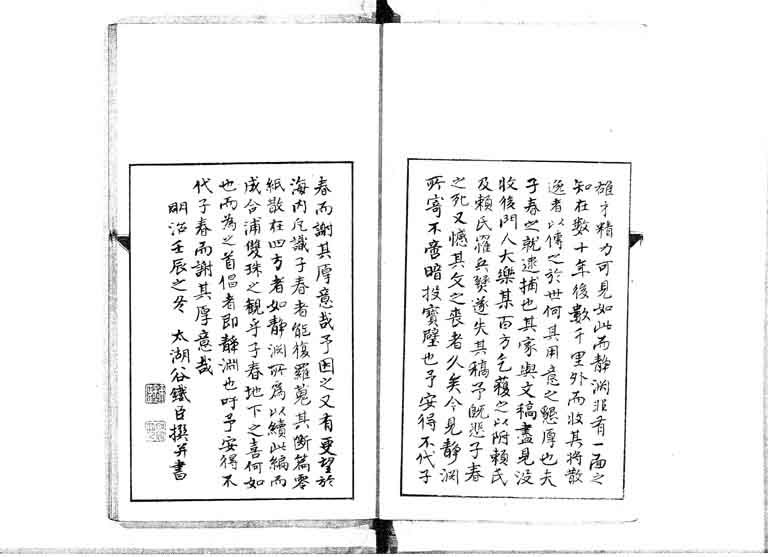 雄才精力可見如此而静淵非有一面之
知在數十年後數千里外而收其将散
逸者以傳之於世何其用意之懇厚也夫
子春之就逮捕也其家與文稿盡見没
收後門人大樂某百方乞獲之以附頼氏
及頼氏罹兵燹遂失其稿予既悲子春
之死又憾其文之喪者久矣今見静淵
所寄不啻暗投寳璧也予安得不代子
春而謝其厚意哉予因之又有更望於
海内凡識子春者能復羅蒐其断篇零
紙散在四方者如静淵所為以續此編而
成合浦雙珠之観乎子春地下之喜何如
也而為之首倡者即静淵也吁予安得不
代子春而謝其厚意哉
明治壬辰之冬 太湖谷鐵臣撰并書